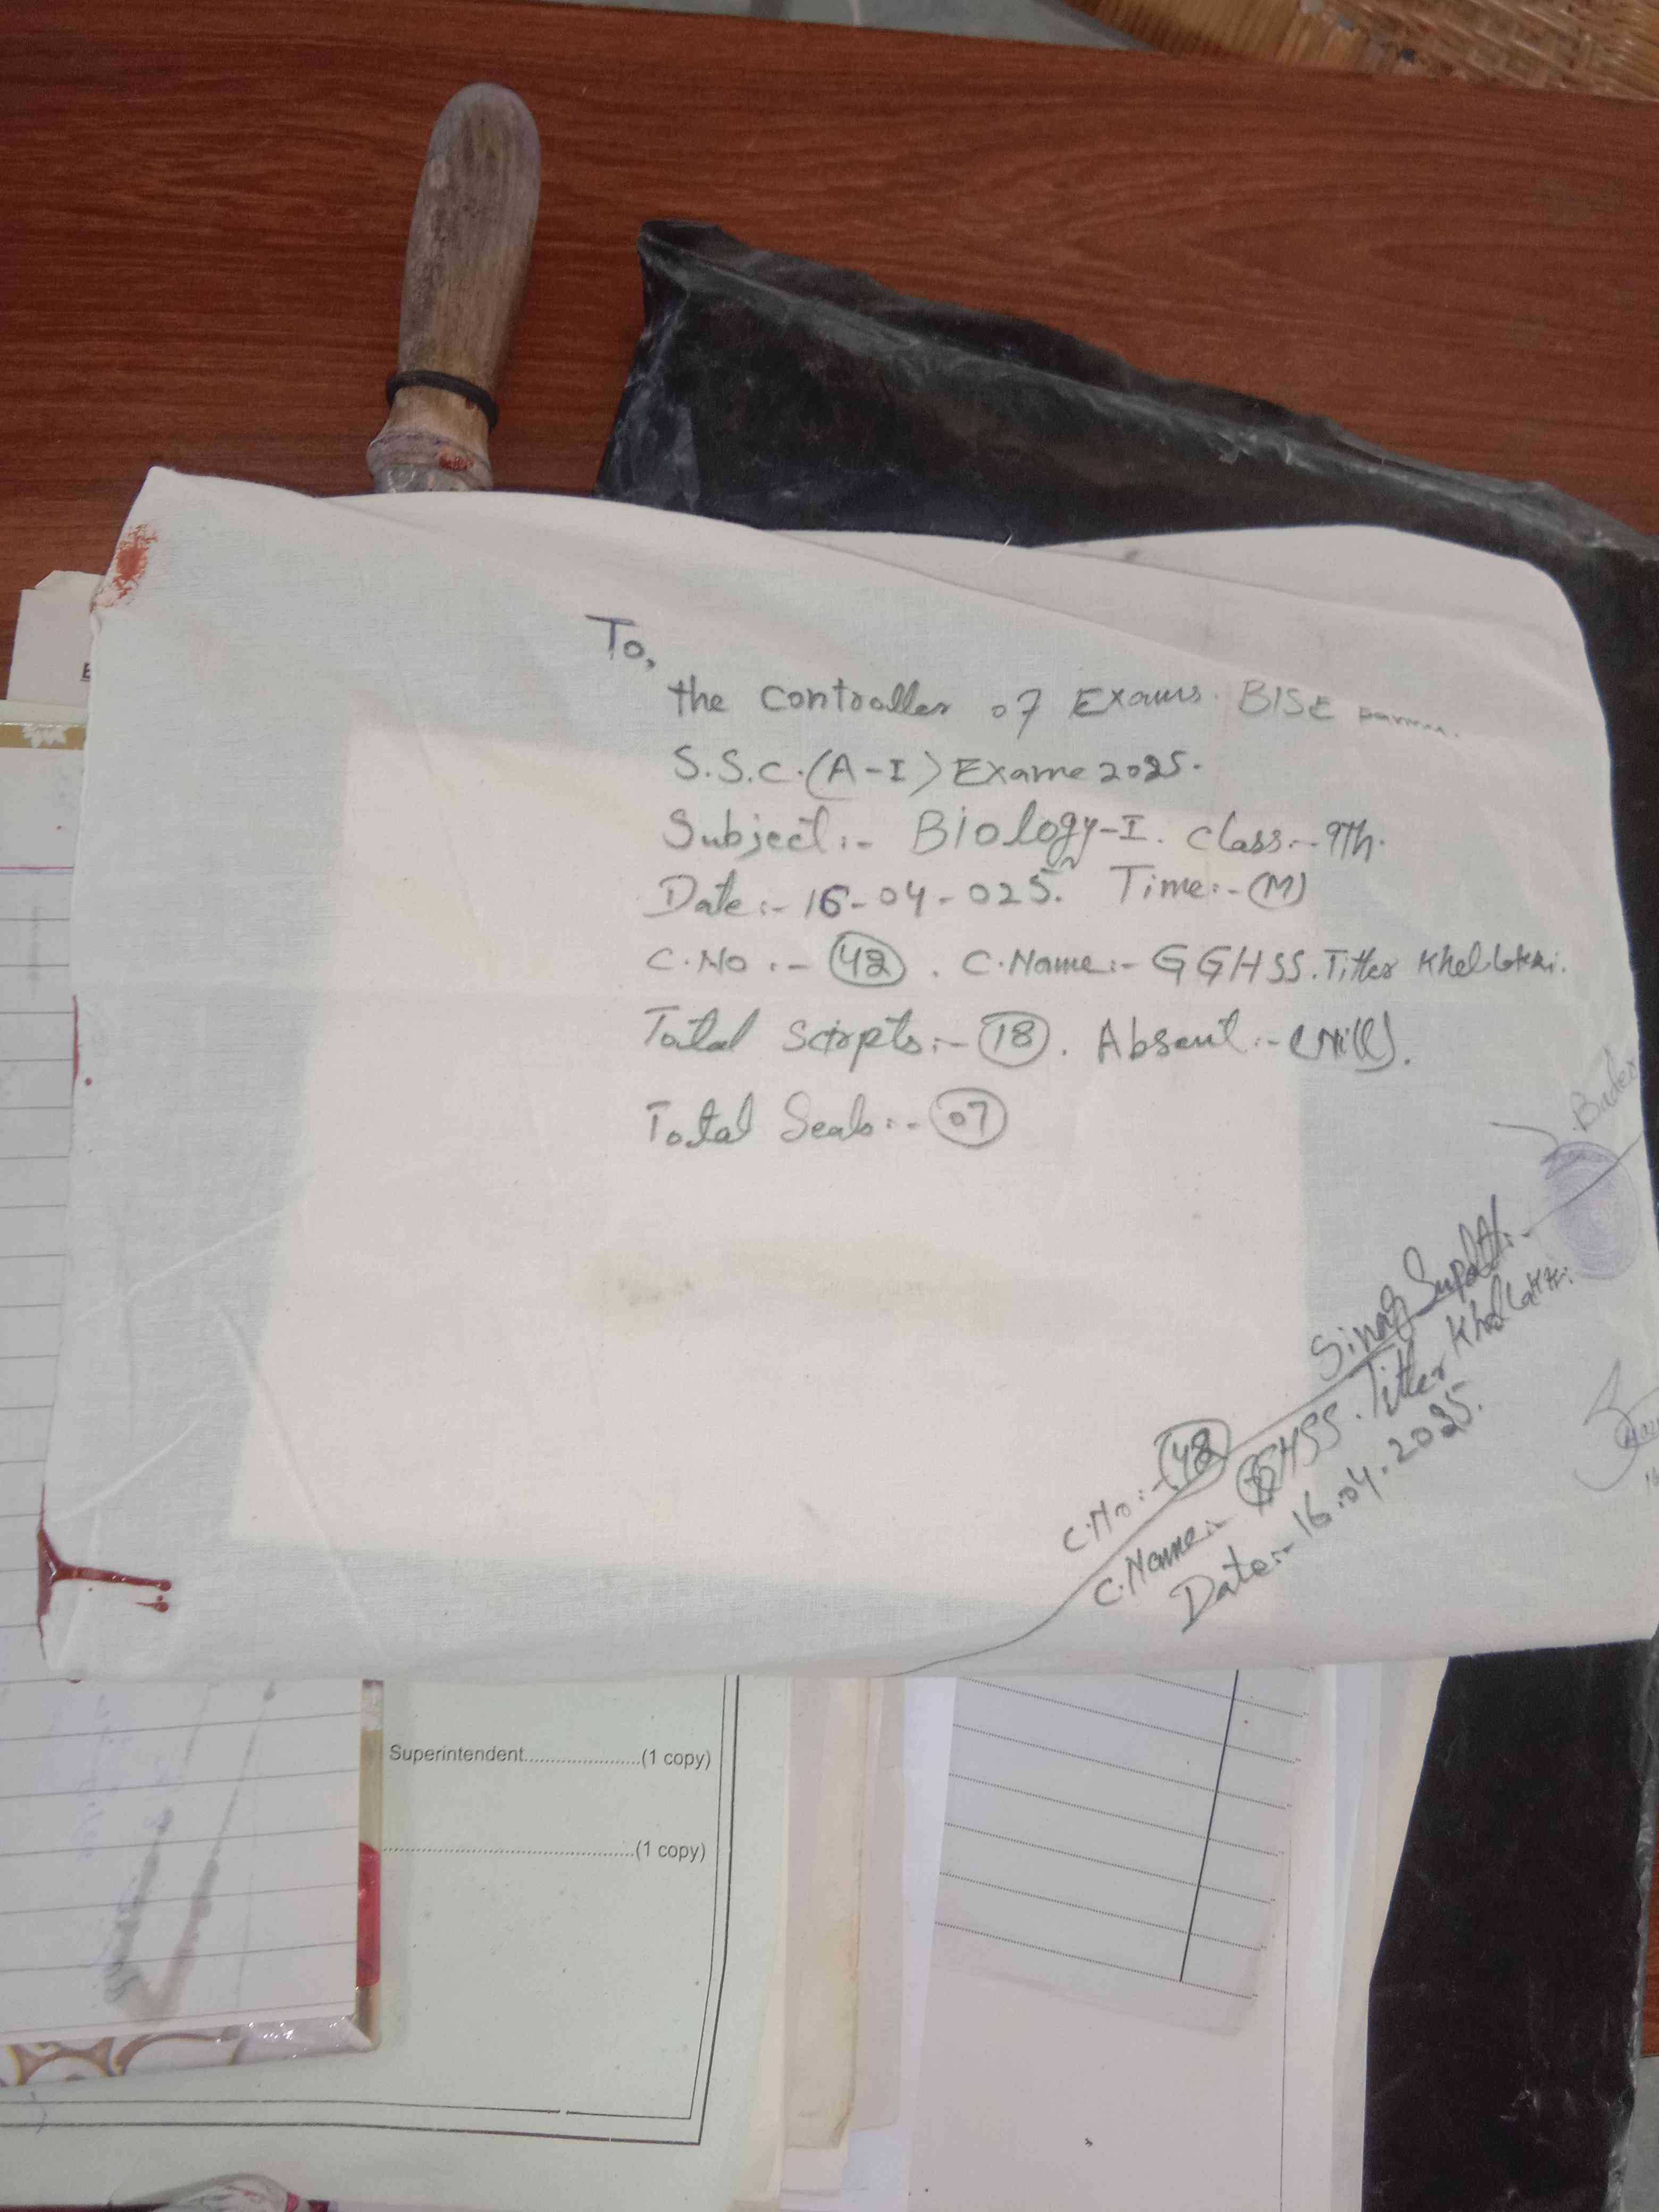 To,
the Controller of Exams. BISE
S.S.C.(A-I) Exame 2025.
Subject:- Biology-I. Class:- 9Th.
Date:- 16-04-025. Time:-(M)
C.No:- 42. C.Name:- GGHSS. Titter Khel
Total Scirpts:- 18. Absent:-(Nill).
Total Seals:- 07
C.No:- 42
C.Name:- GGHSS. Titter Khel
Date:- 16.04.2025.
Superintendent......................(1 copy)
................................................(1 copy)